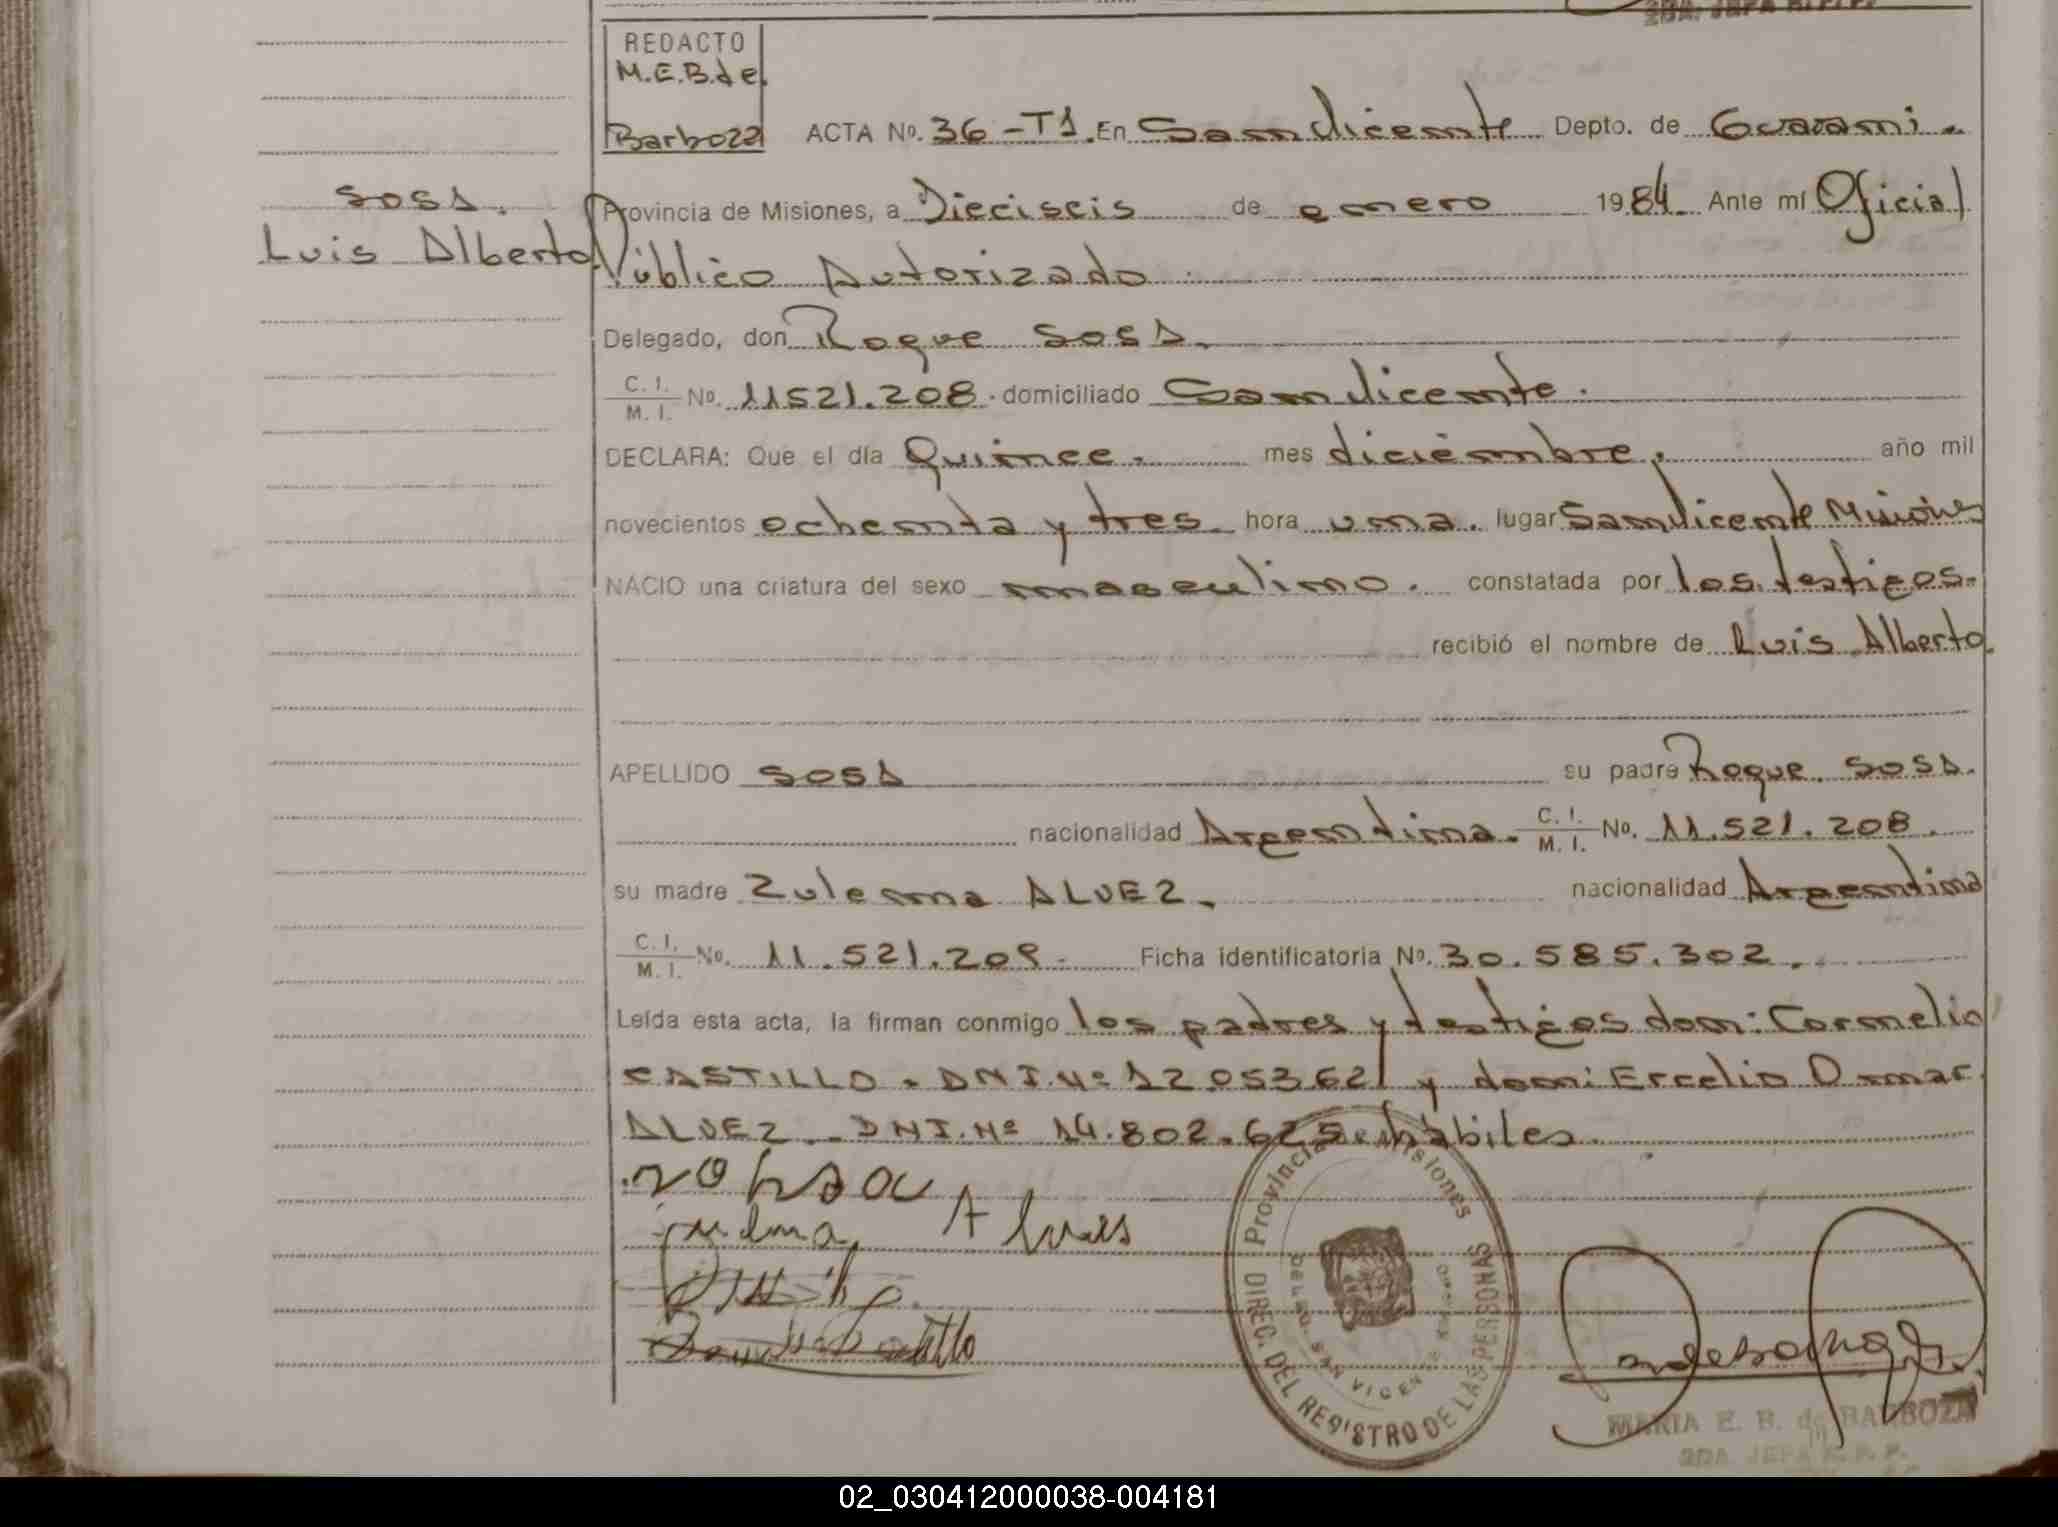 2DA. JEFA R.P.P.
REDACTO
M.E.B. de
Barboza
ACTA No. 36-T1. En San Vicente Depto. de Guaraní.
SOSA.
Provincia de Misiones, a Dieciseis de enero 1984. Ante mí Oficial
Luis Alberto.
Público Autorizado.
Delegado, don Roque SOSA.
C. I.
M. I. No. 11521.208. domiciliado San Vicente.
DECLARA: Que el día Quince. mes diciembre. año mil
novecientos ochenta y tres. hora una. lugar San Vicente Misiones
NACIO una criatura del sexo masculino. constatada por los testigos.
recibió el nombre de Luis Alberto.
APELLIDO SOSA su padre Roque. SOSA.
nacionalidad Argentina. C. I.
M. I. No. 11.521.208.
su madre Zulema ALVEZ. nacionalidad Argentina
C. I.
M. I. No. 11.521.209. Ficha identificatoria No. 30.585.302.
Leída esta acta, la firman conmigo los padres y testigos don: Cornelio
CASTILLO. DNI.Nº 12.053.621 y don: Ercelio Omar
ALVEZ. DNI.Nº 14.802.625. hábiles.
Provincia de Misiones
DIREC. DEL REGISTRO DE LAS PERSONAS
SAN VICENTE
MARIA E. B. de BARBOZA
2DA. JEFA R.P.P.
02_030412000038-004181